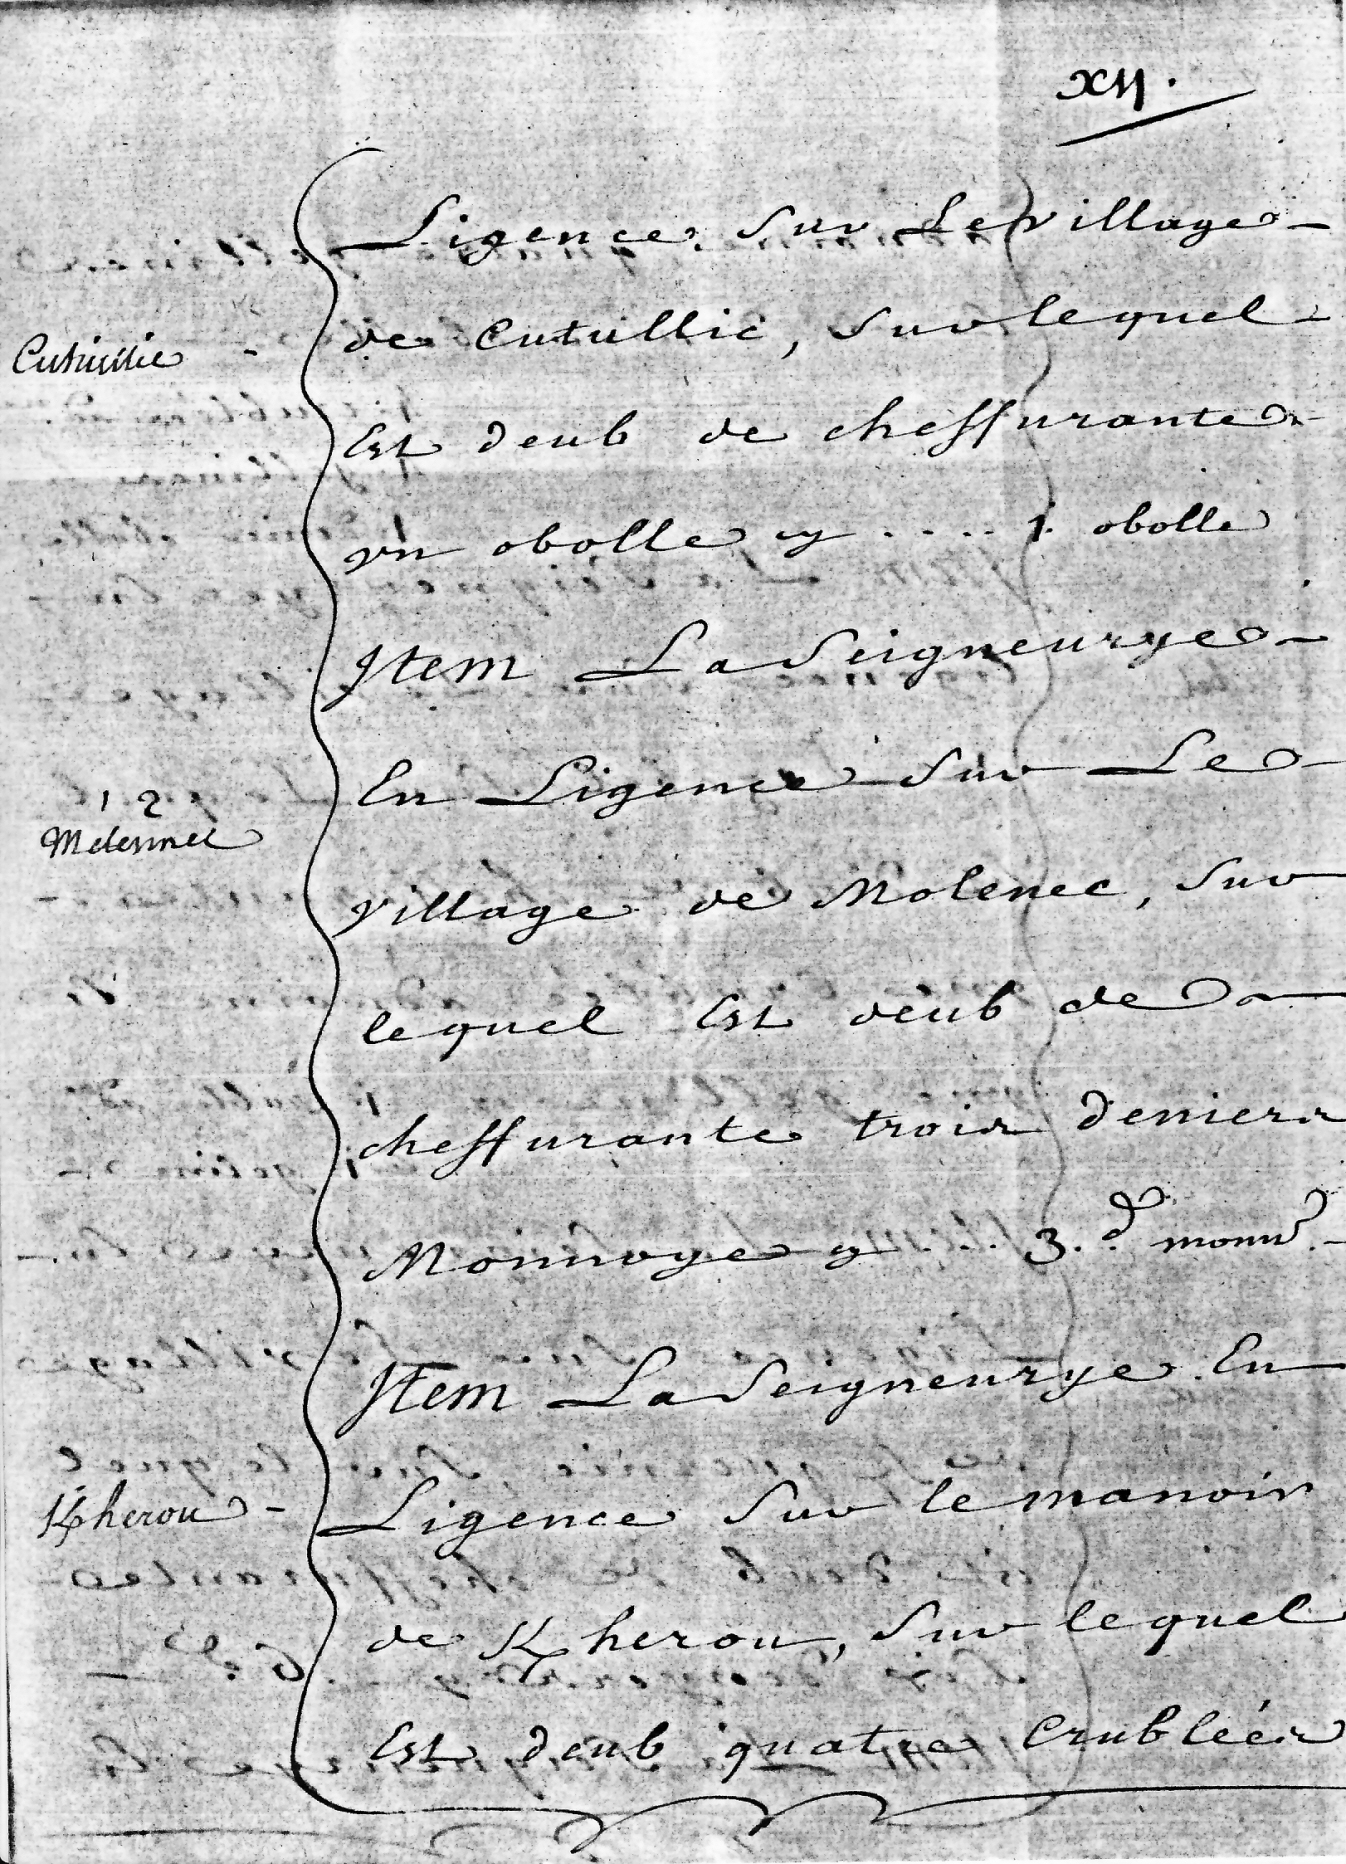 xij.
Ligence sur Le village
de Cutullic, sur lequel
Cutuillic
Est deub de cheffrante
vn obolle cy .... 1. obolle
Item La Seigneurye
En Ligence sur Le
12
village de Molenec, sur
lequel Est deub de
cheffurante trois deniers
Monnoye cy . . . 3. d monn.
Item La Seigneurye En
Ligence sur le manoir
Kherou
de Kherou, sur lequel
Est deub quatre Crublées